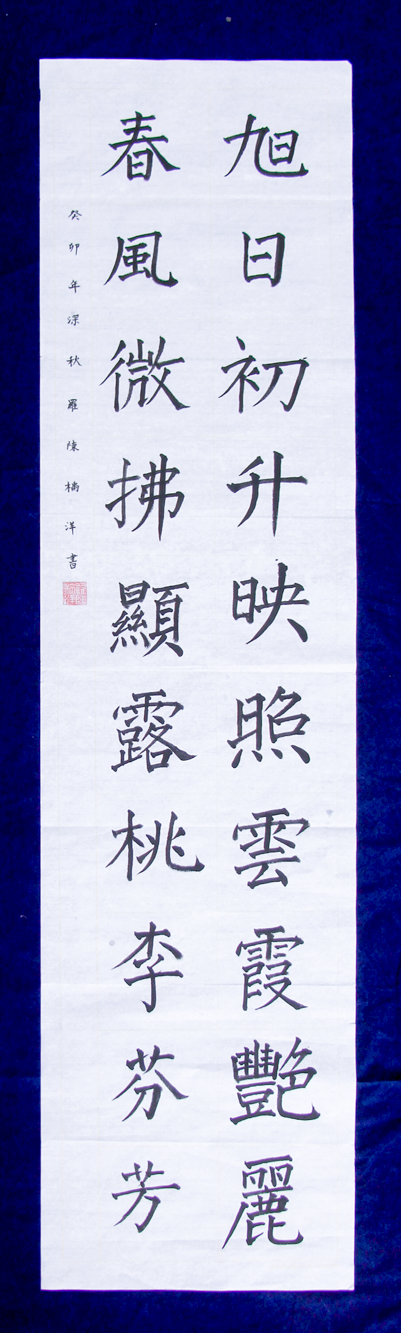 旭日初升映照雲霞艷麗
春風微拂顯露桃李芬芳
癸卯年深秋羅陳楠洋書